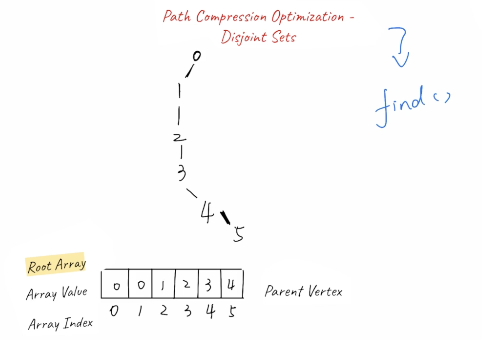 Path Compression Optimization -
Disjoint Sets
find()
0
1
2
3
4
5
Root Array
Array Value 0 0 1 2 3 4 Parent Vertex
Array Index 0 1 2 3 4 5